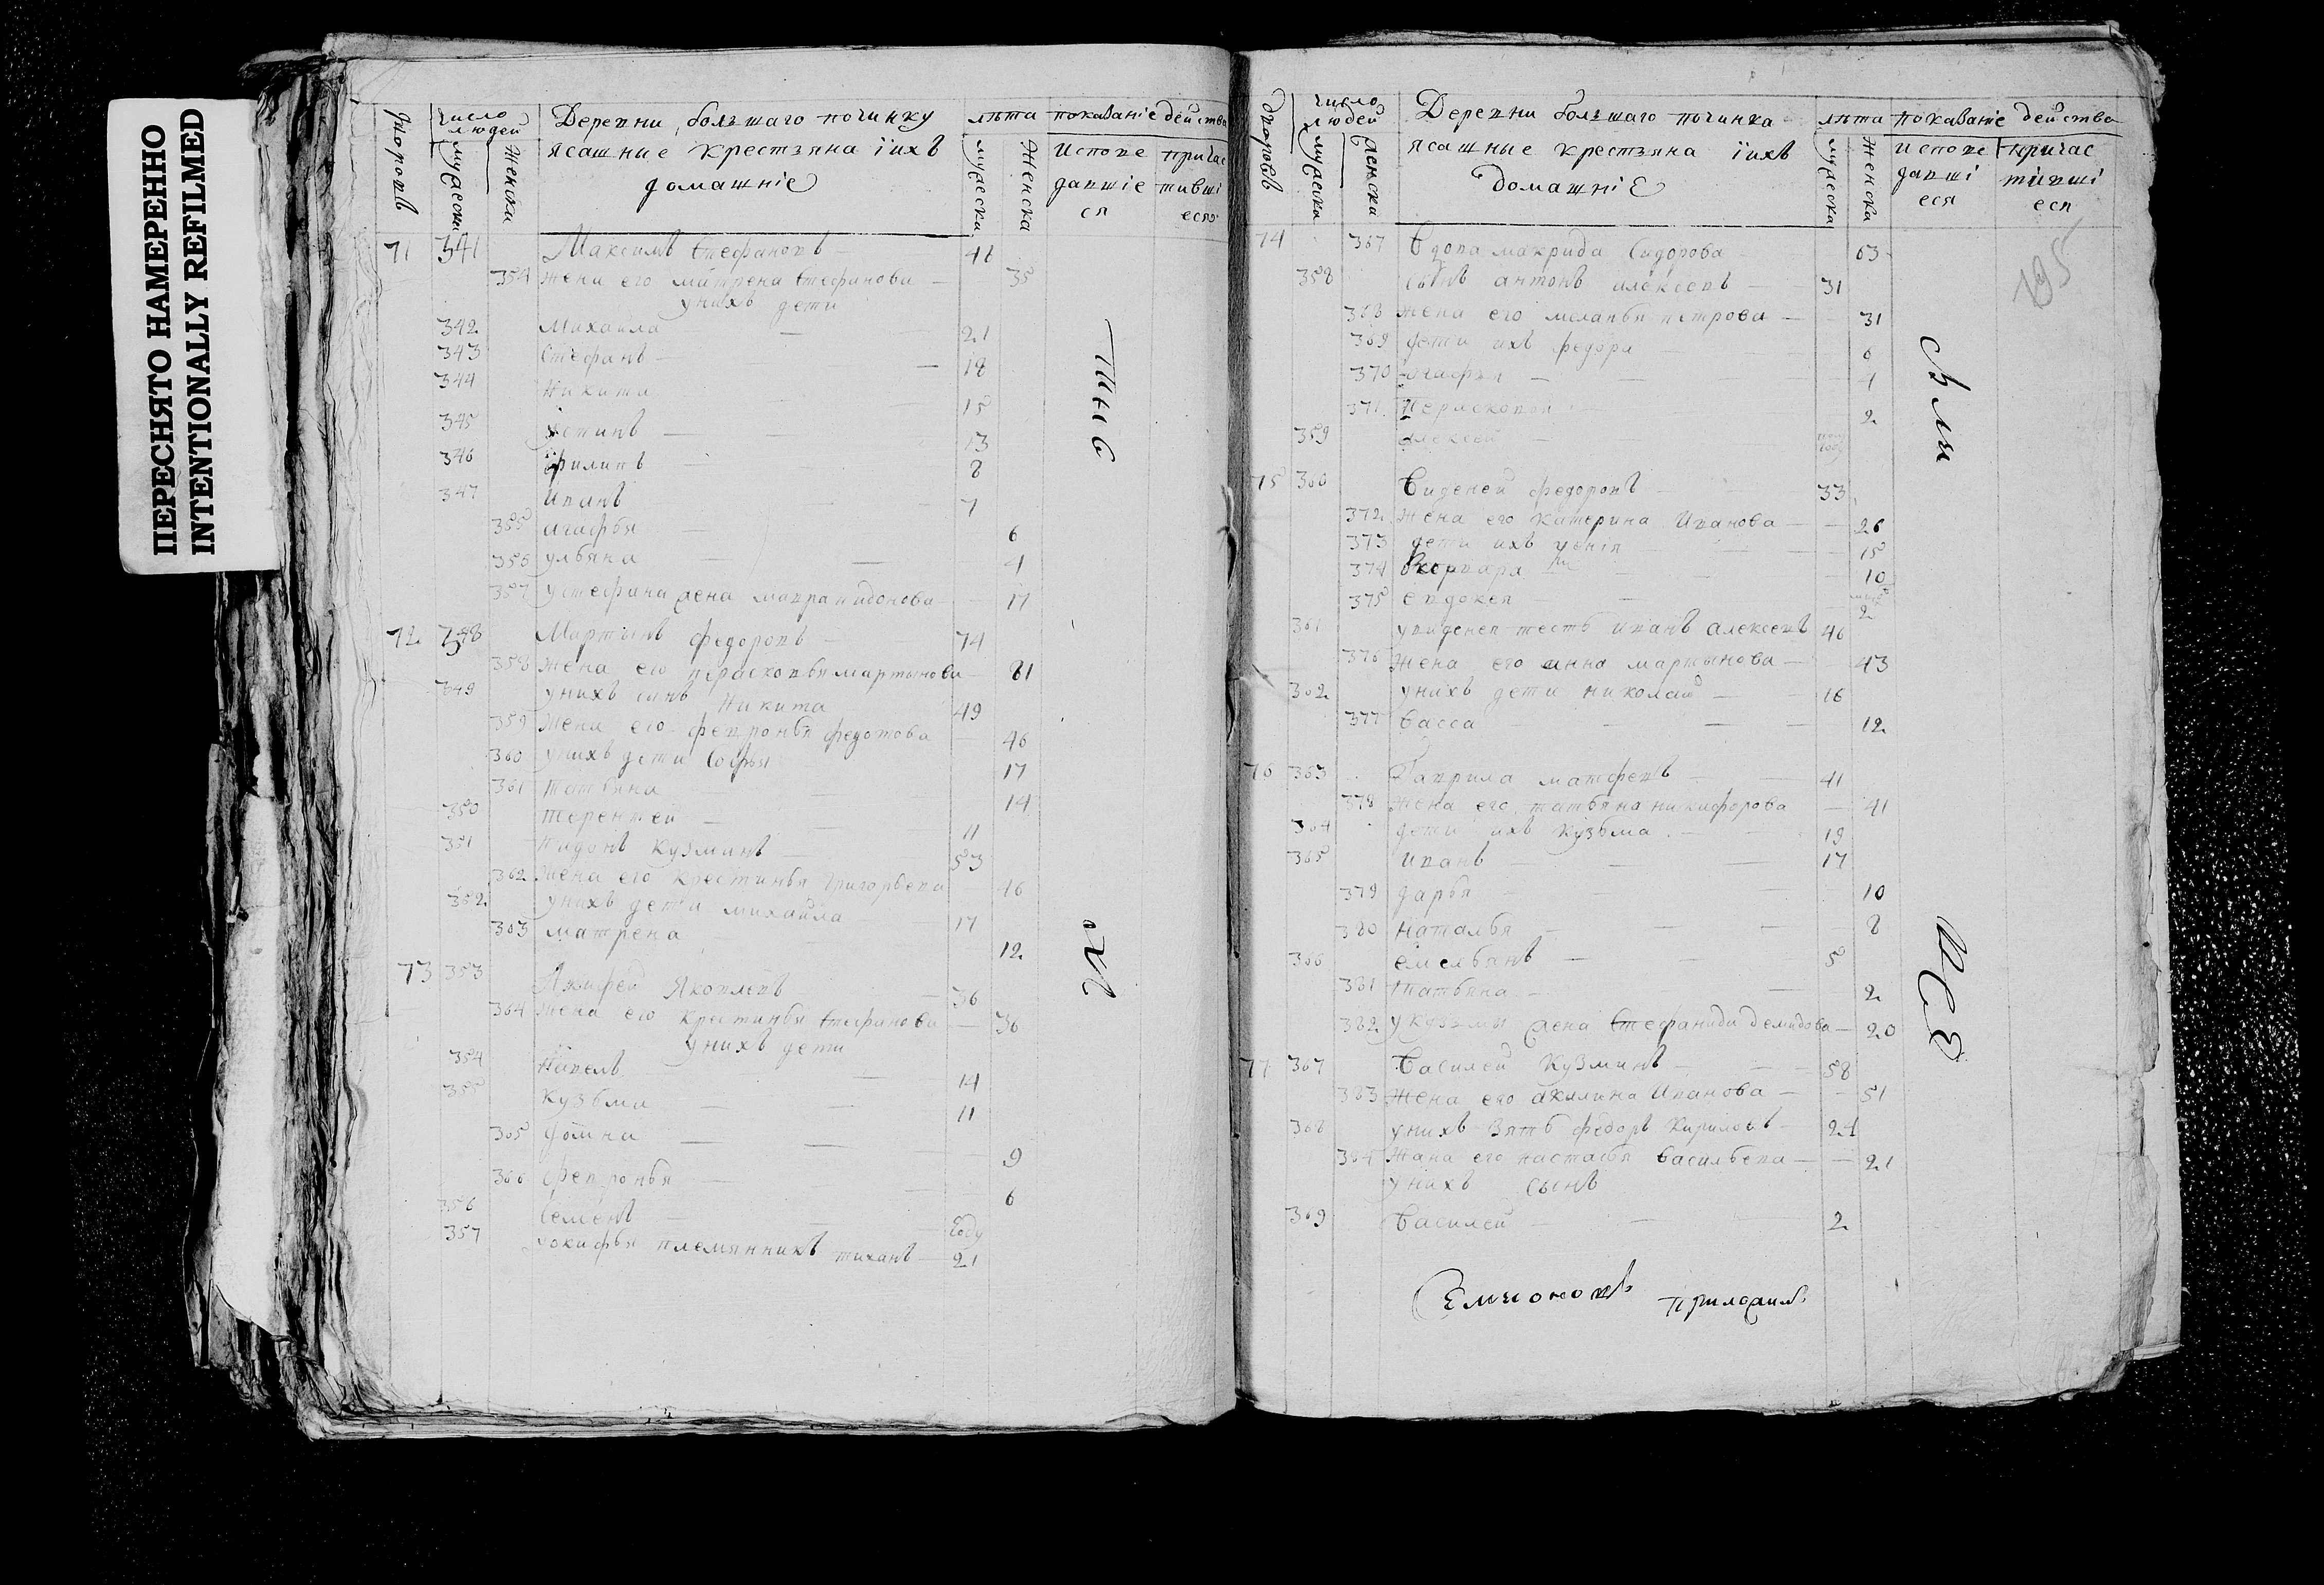 ПЕРЕСНЯТО НАМЕРЕННО
INTENTIONALLY REFILMED
дворовъ
число людей
мужеска
женска
Деревни большаго починку
ясашные крестьяна їихъ
домашнїе
лѣта
мужеска
женска
показанїе действа
испове давшїе ся
причас тившї еся
71 341 Максимъ Стефановъ 41
354 жена его матрена Стефанова 35
унихъ дети
342 Михаила 21
343 Стефанъ 18
344 Никита 15
345 Устинъ 13
346 филипъ 8
347 Иванъ 7
355 агафья 6
356 ульяна 4
357 устефана жена мавра 17
72 348 Мартынъ федоровъ 74
358 жена его парасковья мартынова 81
349 унихъ сынъ Никита 49
359 жена его февронья федотова 46
360 унихъ дети Софья 17
361 татьяна 14
350 терентей 11
351 Кузминъ 53
362 жена его крестинья григорьева 46
352 унихъ дети михаила 17
363 матрена 12
73 353 Яковлевъ 36
364 жена его крестинья Стефанова 36
унихъ дети
354 Павелъ 14
355 Кузьма 11
365 домна 9
366 февронья 6
356 Семенъ году
357 племянникъ тиханъ 21
дворовъ
число людей
мужеска
женска
Деревни большаго починка
ясашные крестьяна їихъ
домашнїе
лѣта
мужеска
женска
показанїе действа
испове давшї еся
причас тившї еся
195
74 367 Вдова макрида Сидорова 63
358 сынъ антонъ алексеевъ 31
368 жена его меланья петрова 31
369 дети ихъ федора 6
370 агафья 4
371 Перасковья 2
359 алексей
75 360 федоровъ 33
372 жена его катерина Иванова 26
373 дети ихъ 15
374 варвара 10
375 евдокея 2
361 тесть иванъ алексеевъ 46
376 жена его анна мартынова 43
362 унихъ дети николай 16
377 васса 12
76 363 Гаврила матфеевъ 41
378 жена его татьяна никифорова 41
364 дети ихъ кузьма 19
365 иванъ 17
379 дарья 10
380 наталья 8
366 емельянъ 5
381 татьяна 2
382 укузьмы жена Стефанида демидова 20
77 367 Василей Кузминъ 58
383 жена его акилина Иванова 51
368 унихъ зять федоръ Кириловъ 24
384 жана его настасья васильева 21
унихъ сынъ
369 Василей 2
приложилъ